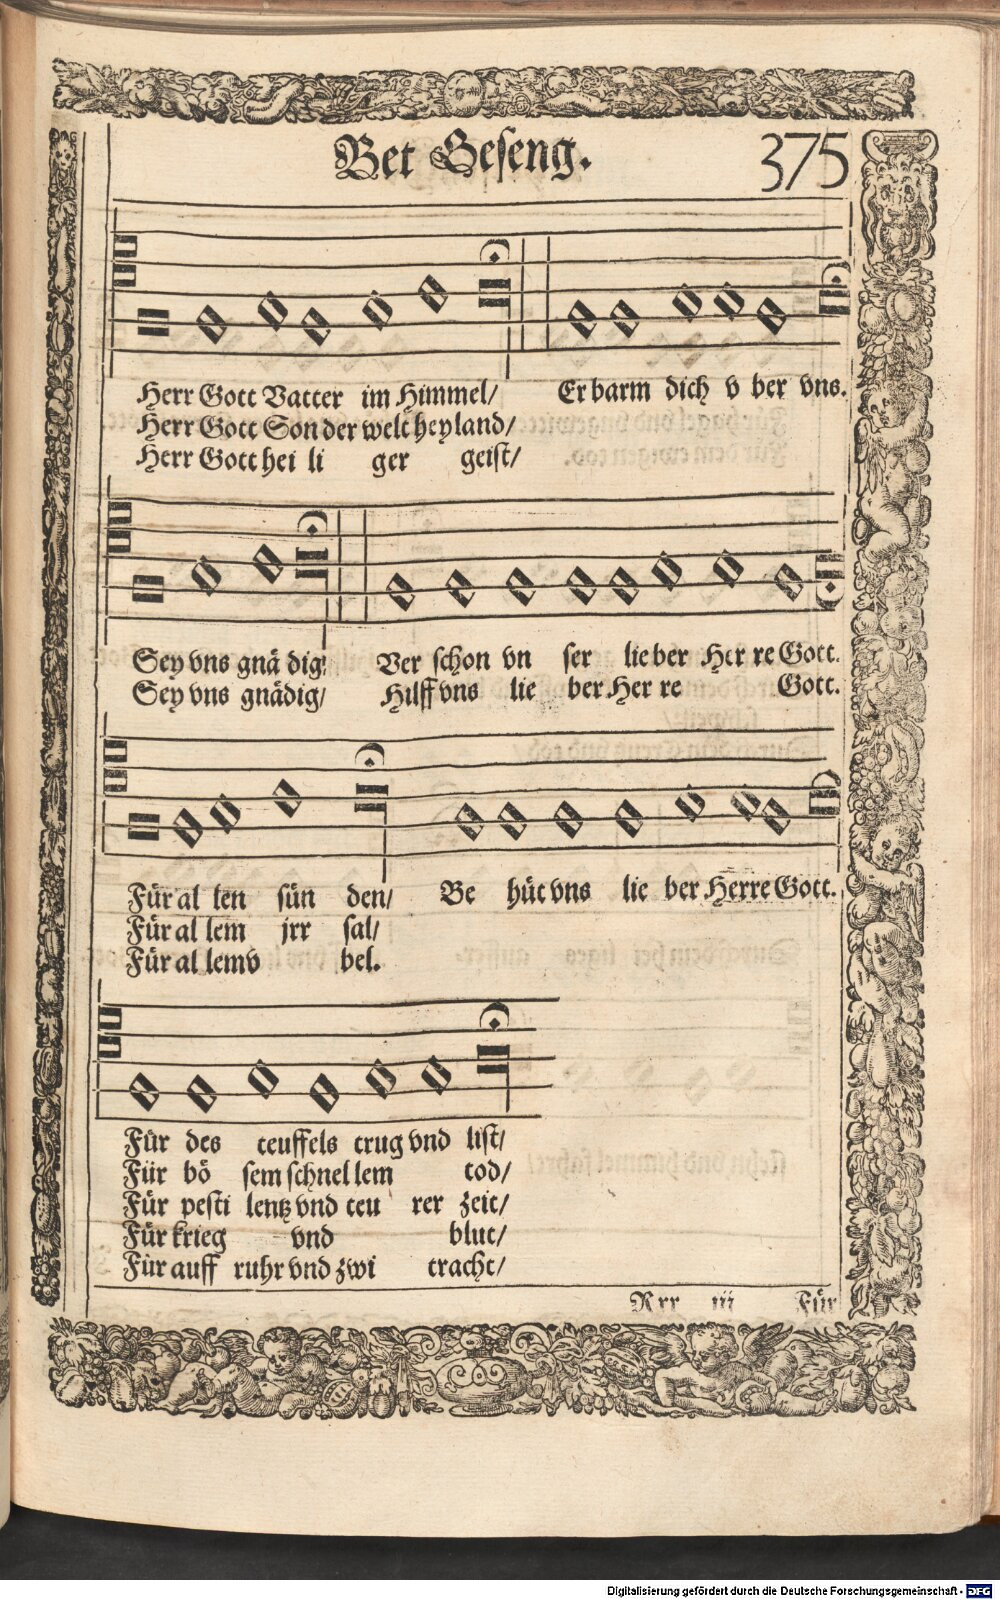 Bet Geseng. 375
Herr Gott Vatter im Himmel/ Er barm dich v ber vns.
Herr Gott Son der welt heyland/
Herr Gott hei li ger geist/
Sey vns gnä dig/ Ver schon vn ser lieber Her re Gott.
Sey vns gnädig/ Hilff vns lie ber Her re Gott.
Für al len sün den/ Be hüt vns lie ber Herre Gott.
Für al lem jrr sal/
Für al lem v bel.
Für des teuffels trug vnd list/
Für bö sem schnel lem tod/
Für pesti lentz vnd teu rer zeit/
Für krieg vnd blut/
Für auff ruhr vnd zwi tracht/
Rrr iij Für
Digitalisierung gefördert durch die Deutsche Forschungsgemeinschaft - DFG